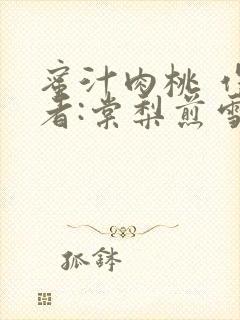 蜜汁肉桃 作
者:棠梨煎雪
狐钵